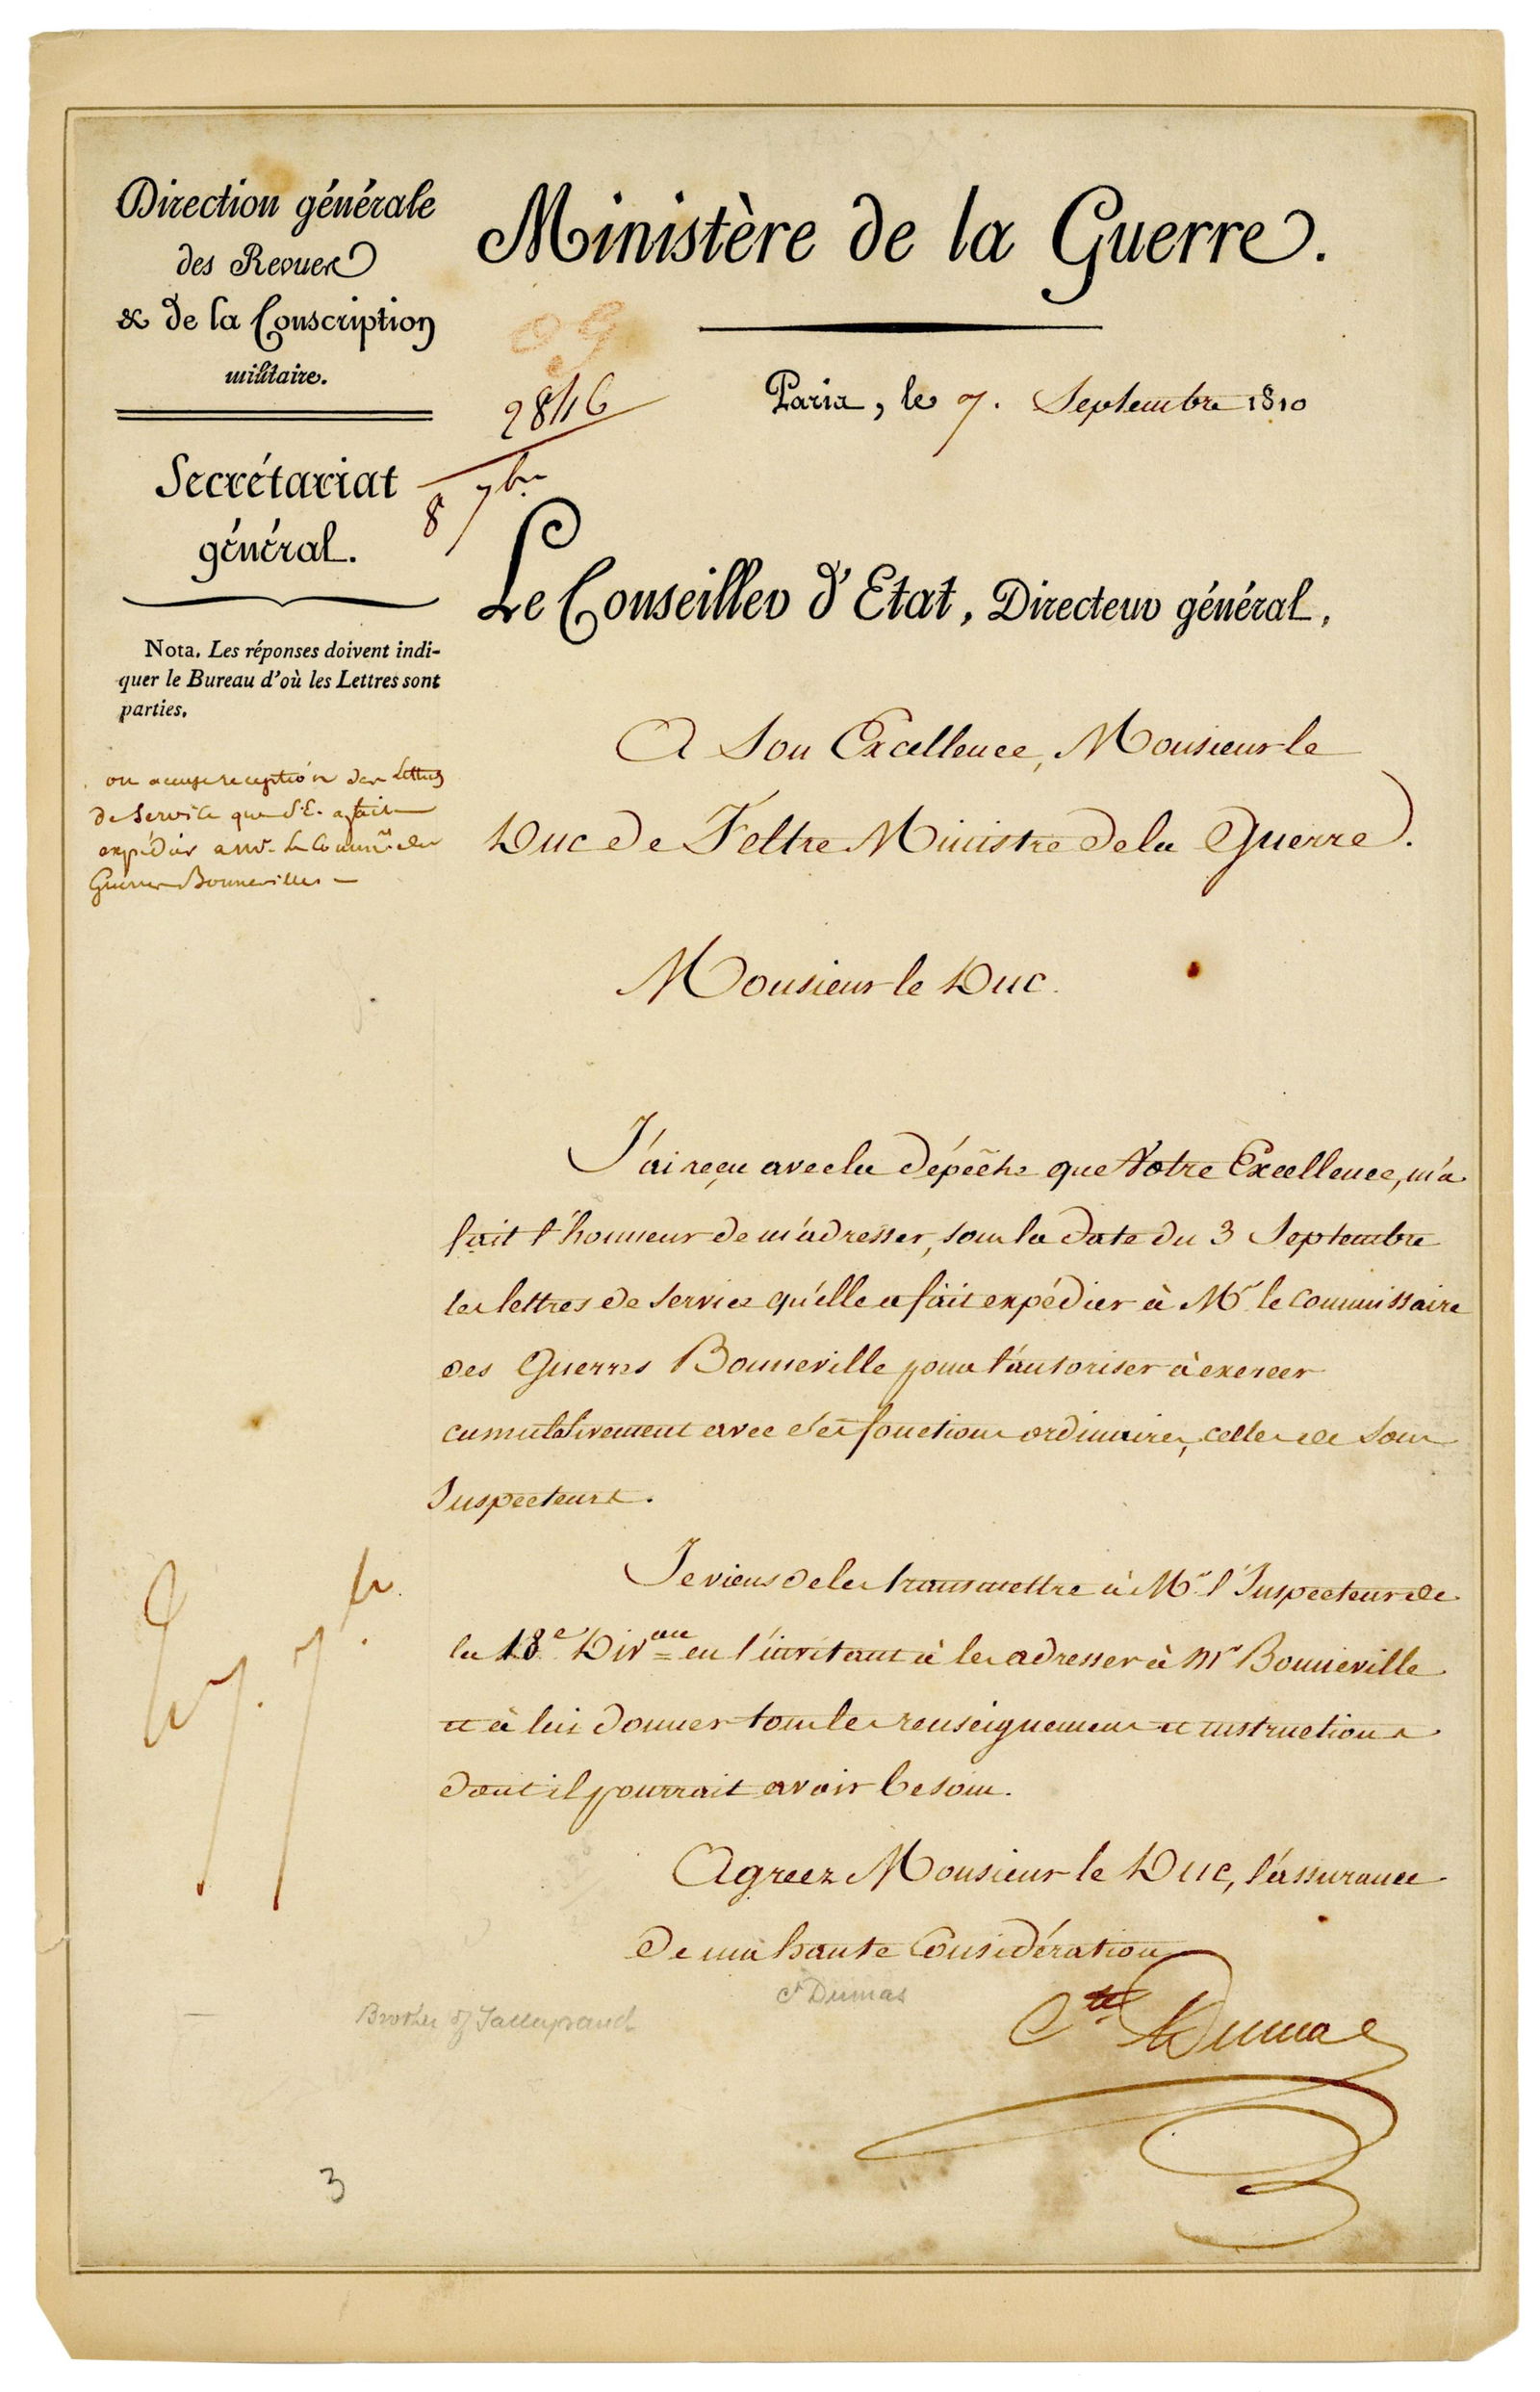 Direction générale
des Revues
& de la Conscription
militaire.
Secrétariat
général.
Nota. Les réponses doivent indi-
quer le Bureau d'où les Lettres sont
parties.
on accuse reception des Lettres
de Service que S.E. a fait
expédier a Mr. le Commre. des
Guerres Bonneville —
Ministère de la Guerre.
2816
8 7bre
Paris, le 7. Septembre 1810
Le Conseiller d'Etat, Directeur général,
A Son Excellence, Monsieur le
Duc de Feltre Ministre de la Guerre.
Monsieur le Duc.
J'ai reçu avec la dépêche que Votre Excellence, m'a
fait l'honneur de m'adresser, sous la date du 3 Septembre
les lettres de service qu'elle a fait expédier à Mr. le Commissaire
des Guerres Bonneville pour l'autoriser à exercer
cumulativement avec ses fonctions ordinaires, celles de Sous
Inspecteurs.
Je viens de les transmettre à Mr. l'Inspecteur de
la 18e Divon en l'invitant à les adresser à Mr Bonneville
et à lui donner tous les renseignemens et instructions
dont il pourrait avoir besoin.
Agreez Monsieur le Duc, l'assurance
de ma haute Considération
Ct Dumas
Cte Dumas
Brother of Talleyrand
3